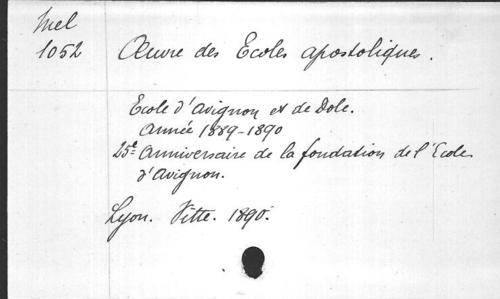 Mel
1052
Œuvre des Ecoles apostoliques.
Ecole d'Avignon et de Dole.
Année 1889-1890
25e Anniversaire de la fondation de l'Ecole
d'Avignon.
Lyon. Vitte. 1890.